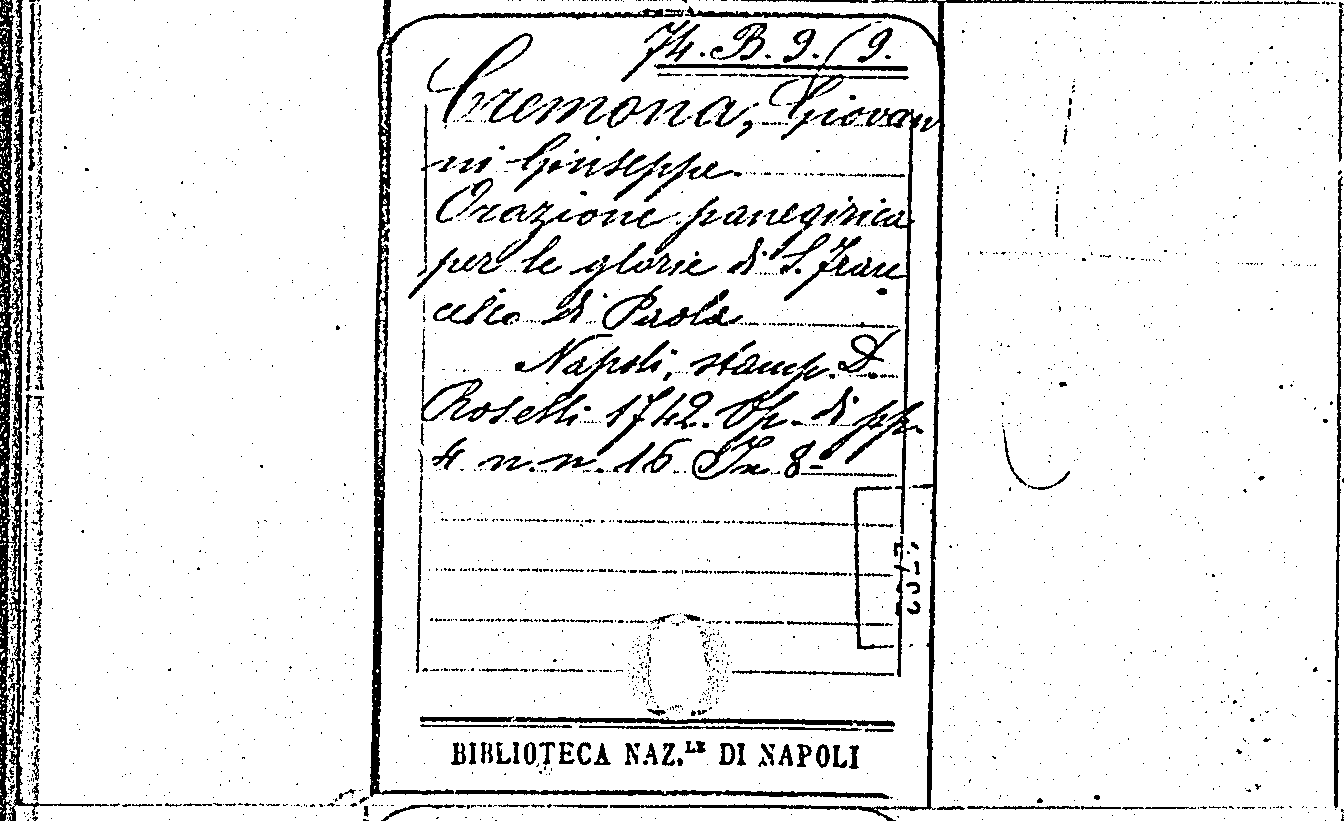 74. B. 9. (9.
Cremona, Giovan
ni Giuseppe.
Orazione panegirica
per le glorie di S. Fran
cesco di Paola
Napoli, stamp. D.
Roselli 1742. Op. di pp.
4 n. n. 16 In 8-
BIBLIOTECA NAZ.LE DI NAPOLI